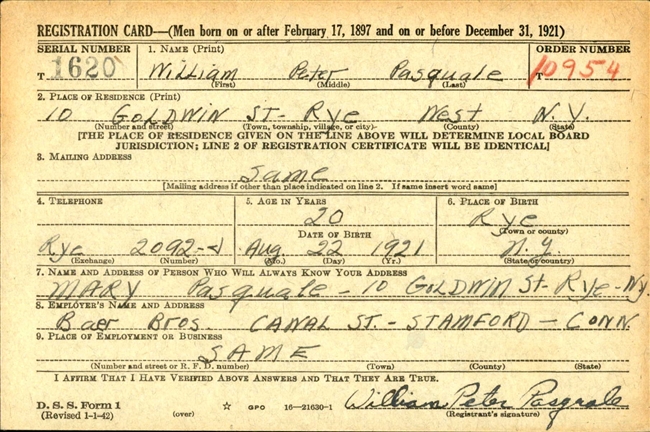 REGISTRATION CARD—(Men born on or after February 17, 1897 and on or before December 31, 1921)
SERIAL NUMBER 1. NAME (Print) ORDER NUMBER
T 1620 William Peter Pasquale T 10954
(First) (Middle) (Last)
2. PLACE OF RESIDENCE (Print)
10 GOLDWIN ST- Rye West N.Y.
(Number and street) (Town, township, village, or city) (County) (State)
[THE PLACE OF RESIDENCE GIVEN ON THE LINE ABOVE WILL DETERMINE LOCAL BOARD
JURISDICTION; LINE 2 OF REGISTRATION CERTIFICATE WILL BE IDENTICAL]
3. MAILING ADDRESS
Same
[Mailing address if other than place indicated on line 2. If same insert word same]
4. TELEPHONE 5. AGE IN YEARS 6. PLACE OF BIRTH
20 Rye
DATE OF BIRTH (Town or county)
Rye 2092-J Aug 22 1921 N.Y.
(Exchange) (Number) (Mo.) (Day) (Yr.) (State or country)
7. NAME AND ADDRESS OF PERSON WHO WILL ALWAYS KNOW YOUR ADDRESS
MARY Pasquale - 10 GOLDWIN St- Rye- Ny.
8. EMPLOYER'S NAME AND ADDRESS
Baer Bros. CANAL ST. - STAMFORD - CONN.
9. PLACE OF EMPLOYMENT OR BUSINESS
SAME
(Number and street or R. F. D. number) (Town) (County) (State)
I AFFIRM THAT I HAVE VERIFIED ABOVE ANSWERS AND THAT THEY ARE TRUE.
D. S. S. Form 1
(Revised 1-1-42) (over) ☆ GPO 16—21630-1 William Peter Pasquale
(Registrant's signature)